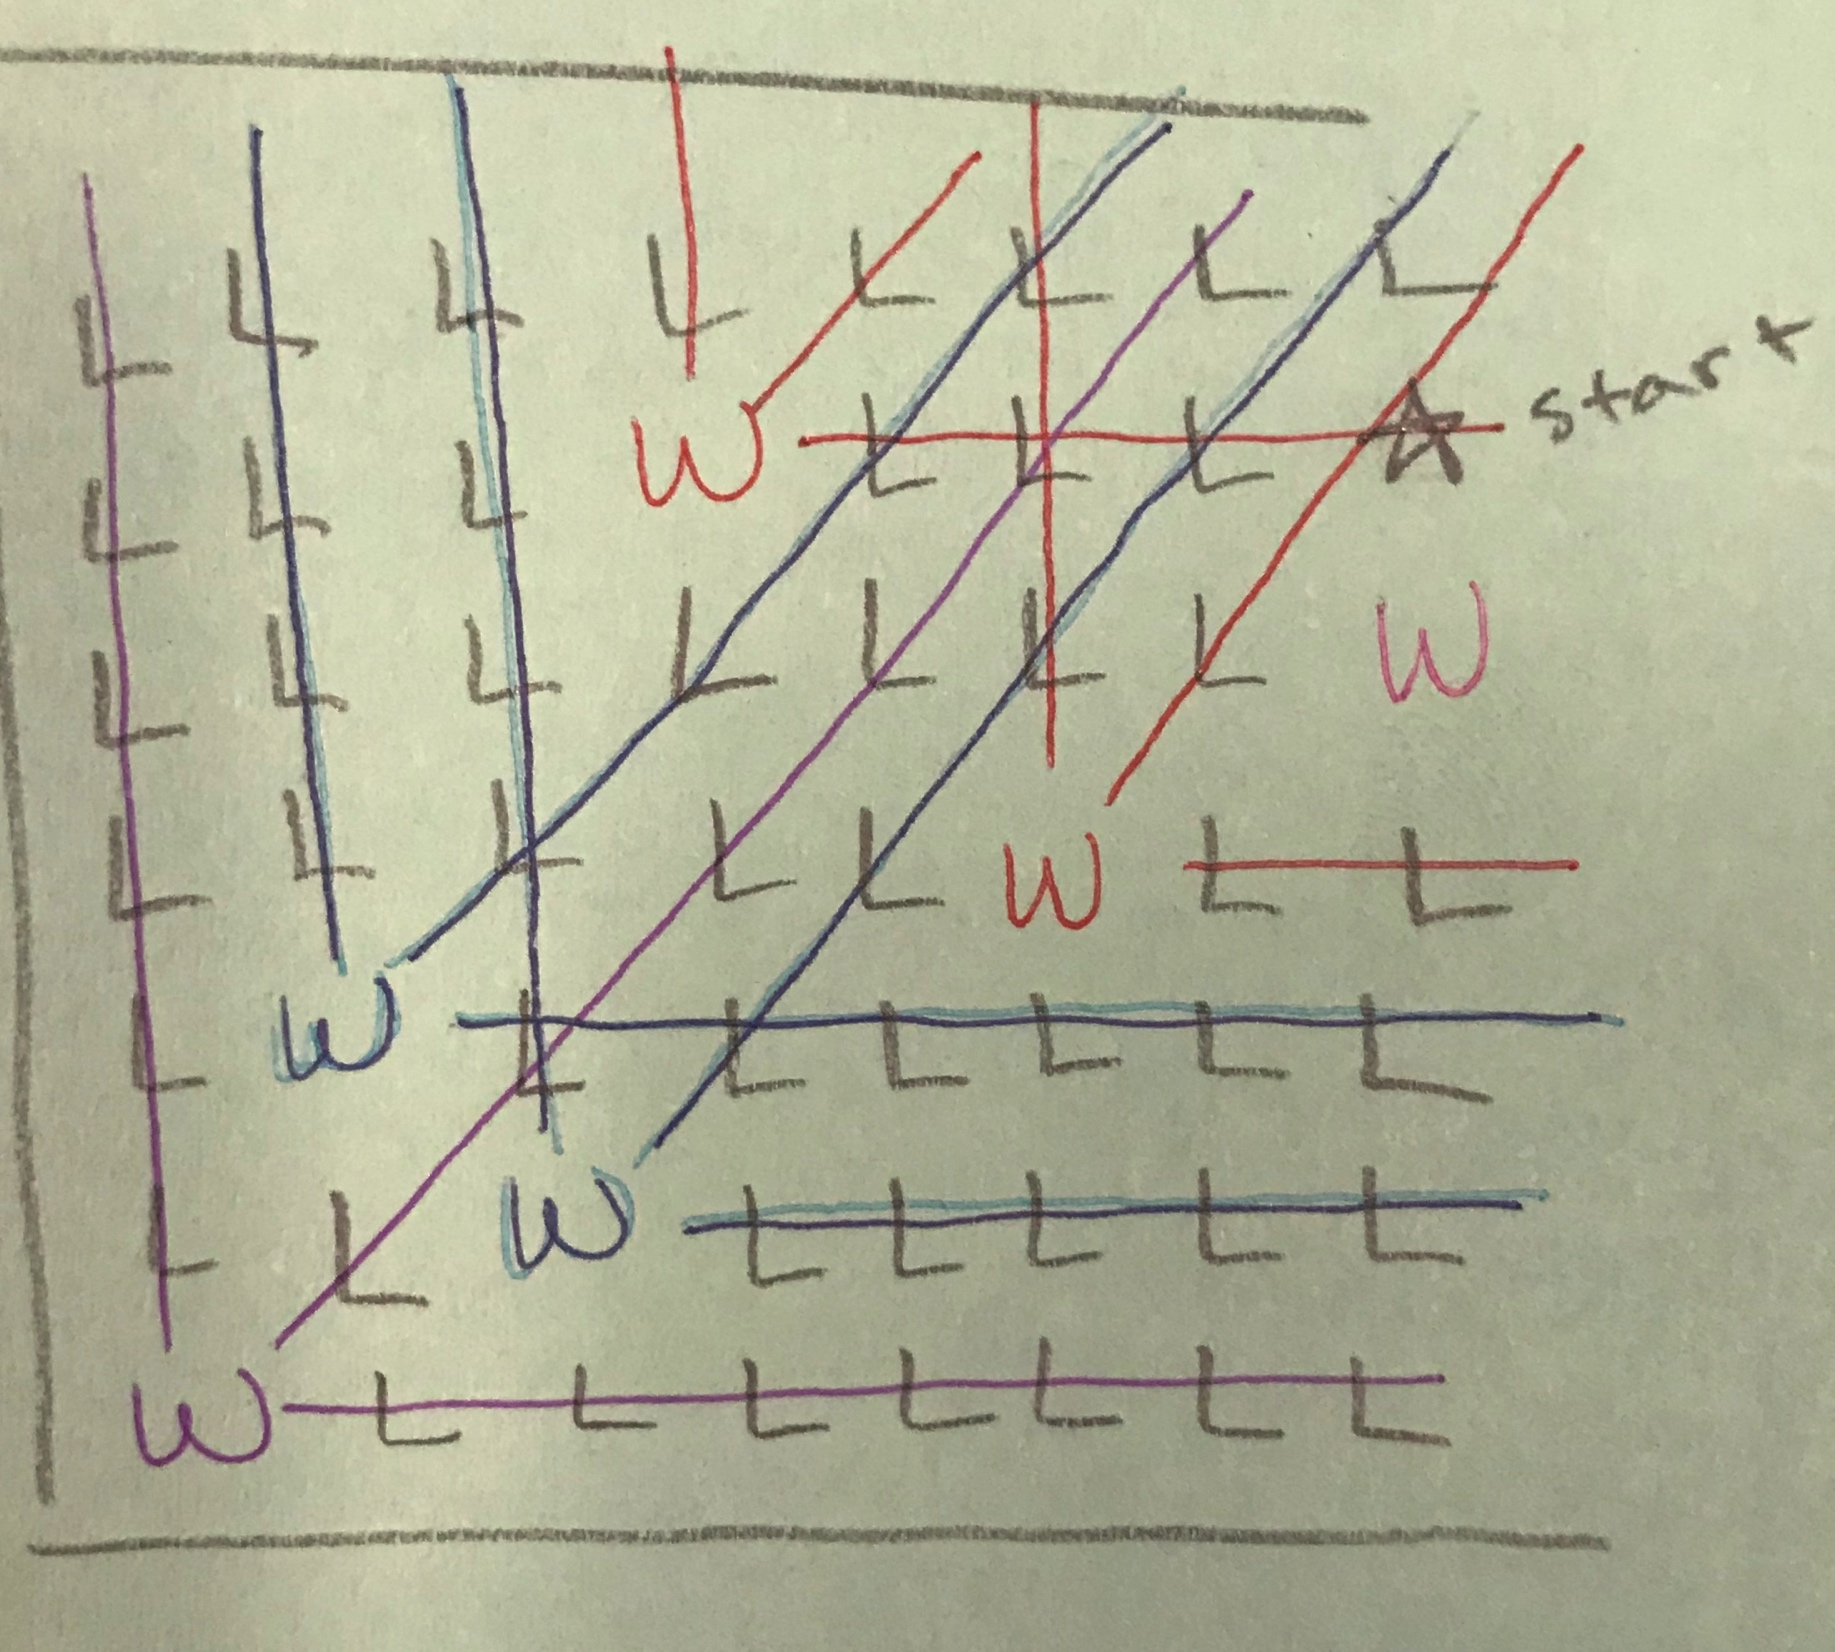 L L L L L L L L
L L L W L L L ☆ start
L L L L L L L W
L L L L L W L L
L W L L L L L L
L L W L L L L L
W L L L L L L L